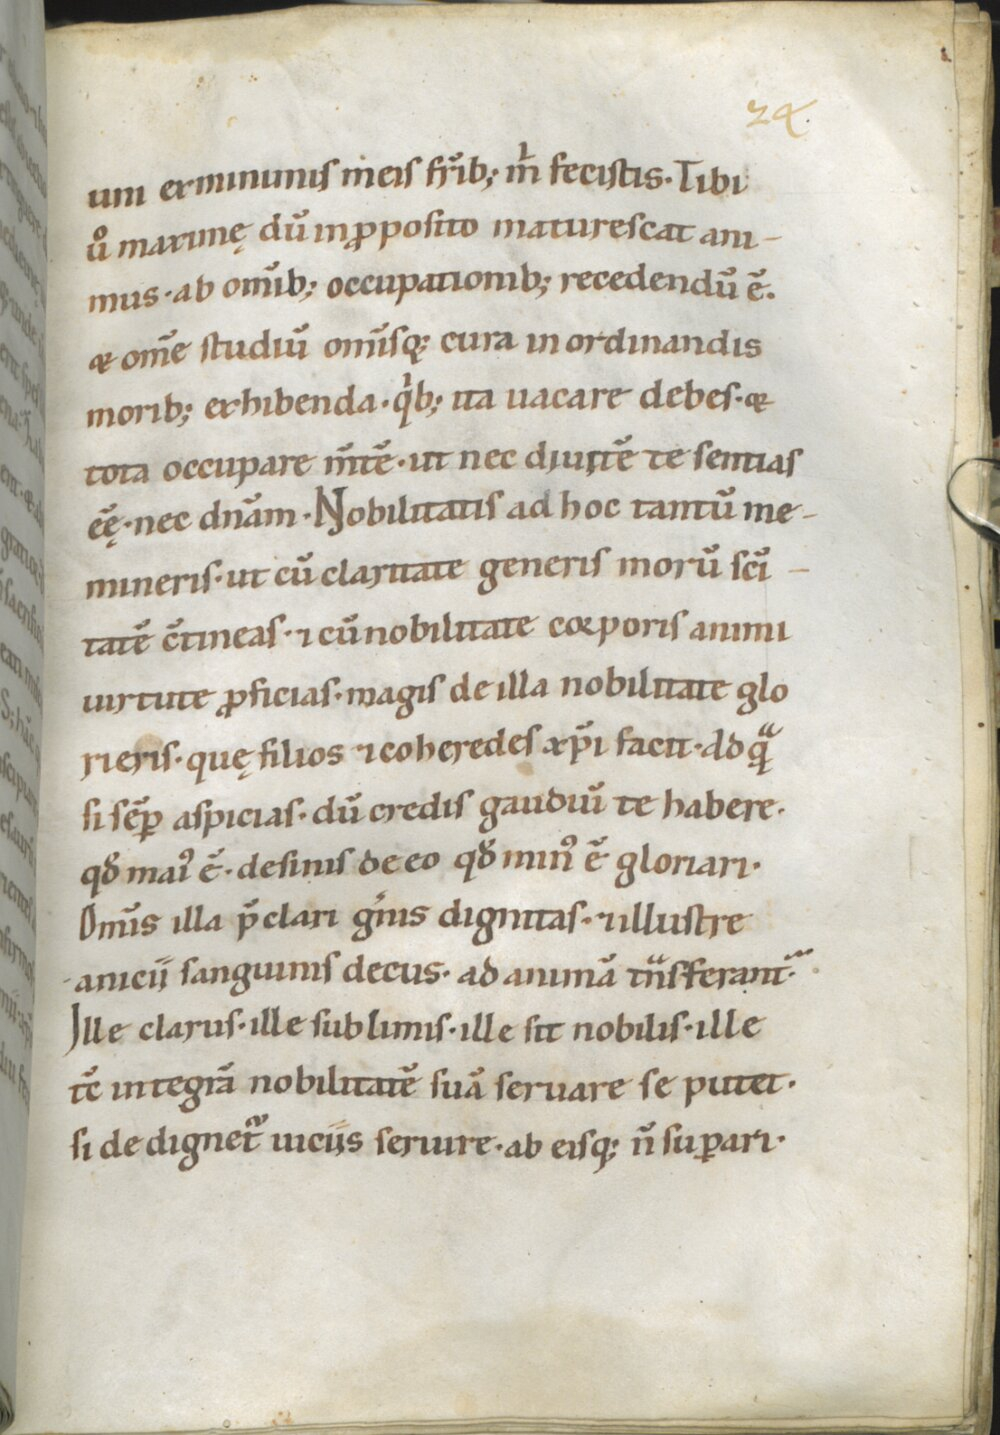 24.
um ex minimis meis fr̄ib; m̍ fecistis. Tibi
ů maximę dū in ꝓposito maturescat ani-
mus. ab om̄ib; occupationib; recedendū ē.
& om̄e studiū om̄isq; cura in ordinandis
morib; exhibenda. q̍b; ita uacare debes. &
tota occupare m̄tē. ut nec diuitē te sentias
eę̄. nec dn̄am. Nobilitatis ad hoc tantū me-
mineris. ut cū claritate generis morū sc̄i-
tatē c̄tineas. ⁊ cū nobilitate corporis animi
uirtute ꝓficias. magis de illa nobilitate glo
rieris. quę filios ⁊ coheredes xp̄i facit. Ad qᷓ
si sēp̱ aspicias. dū credis gaudiū te habere.
qđ mai᾿ ē. desinis de eo qđ min᾿ ē gloriari.
Om̄s illa p̄clari gn̄is dignitas. ⁊ illustre
anicii sanguinis decus. ad animā tᷓnsferant᷑.
Ille clarus. ille sublimis. ille sit nobilis. ille
tc̄ integrā nobilitatē suā seruare se putet.
si dedignet᷑ uiciis seruire. ab eisq; n̄ suꝑari.